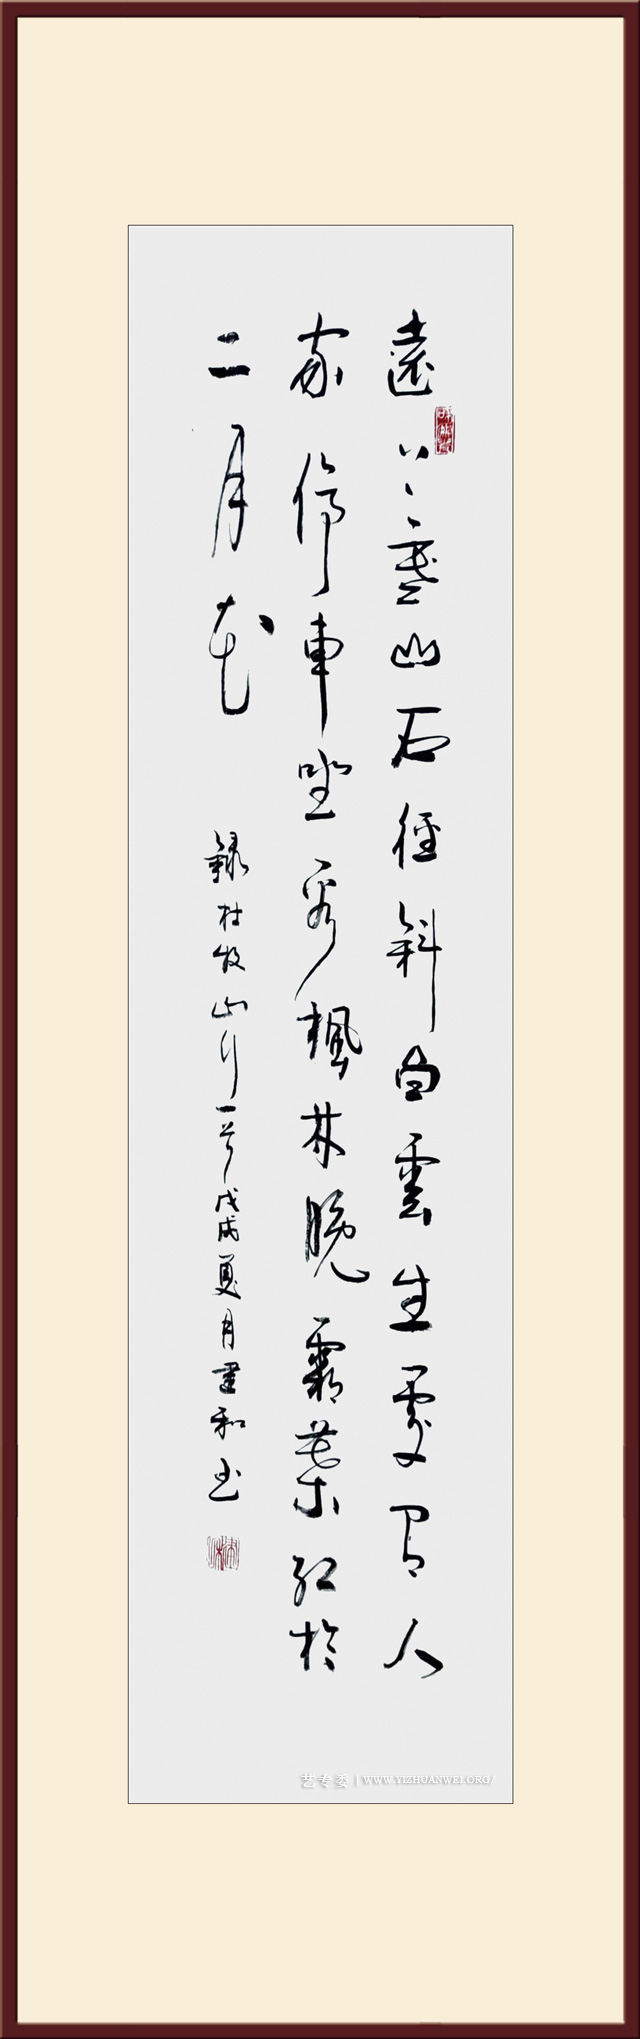 遠上寒山石徑斜白雲生處有人
家停車坐愛楓林晚霜葉紅於
二月花 録杜牧山行一首戊戌夏月建和書
艺专委 | WWW.YIZHUANWEI.ORG/